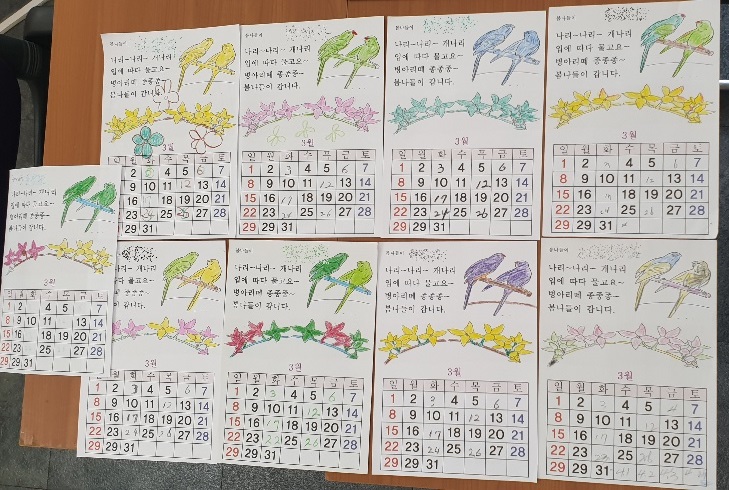 봄나들이
나리~나리~ 개나리
입에 따다 물고요~
병아리떼 종종종~
봄나들이 갑니다.
3월
2 3 4 5 6 7
9 10 11 12 13 14
18 19 20 21
23 24 25 26 27 28
30 31
봄나들이
나리~나리~ 개나리
입에 따다 물고요~
병아리떼 종종종~
봄나들이 갑니다.
3월
일 월 화 수 목 금 토
1 2 3 4 5 6 7
8 9 10 11 12 13 14
15 16 17 18 19 20 21
22 23 24 25 26 27 28
29 30 31
봄나들이
나리~나리~ 개나리
입에 따다 물고요~
병아리떼 종종종~
봄나들이 갑니다.
3월
일 월 화 수 목 금 토
1 2 3 4 5 6 7
8 9 10 11 12 13 14
15 16 17 18 19 20 21
22 23 24 25 26 27 28
29 30 31
봄나들이
나리~나리~ 개나리
입에 따다 물고요~
병아리떼 종종종~
봄나들이 갑니다.
3월
일 월 화 수 목 금 토
1 2 4 5 6 7
8 9 10 11 12 13 14
15 16 18 19 20 21
22 23 24 25 27 28
29 30 31
나리~나리~ 개나리
입에 따다 물고요~
병아리떼 종종종~
봄나들이 갑니다.
3월
일 월 화 수 목 금 토
1 2 4 5 7
8 9 10 11 13 14
15 16 18 19 20 21
22 23 25 27 28
29 30 31
나리~나리~ 개나리
입에 따다 물고요~
병아리떼 종종종~
봄나들이 갑니다.
3월
일 월 화 수 목 금 토
1 2 3 4 5 6 7
8 9 10 11 12 13 14
15 16 17 18 19 20 21
22 23 24 25 26 27 28
29 30 31
봄나들이
나리~나리~ 개나리
입에 따다 물고요~
병아리떼 종종종~
봄나들이 갑니다.
3월
일 월 화 수 목 금 토
1 2 3 4 5 6 7
8 9 10 11 12 13 14
15 16 17 18 19 20 21
22 23 22 25 26 27 28
29 30 31
봄나들이
나리~나리~ 개나리
입에 따다 물고요~
병아리떼 종종종~
봄나들이 갑니다.
3월
일 월 화 수 목 금 토
1 2 3 4 5 6 7
8 9 10 11 12 13 14
15 16 17 18 19 20 21
22 23 24 25 26 27 28
29 30 31
봄나들이
나리~나리~ 개나리
입에 따다 물고요~
병아리떼 종종종~
봄나들이 갑니다.
3월
일 월 화 수 목 금 토
1 2 3 4 5 7
8 9 10 11 12 13 14
15 16 17 18 19 20 21
22 23 25 26 27 28
29 30 31